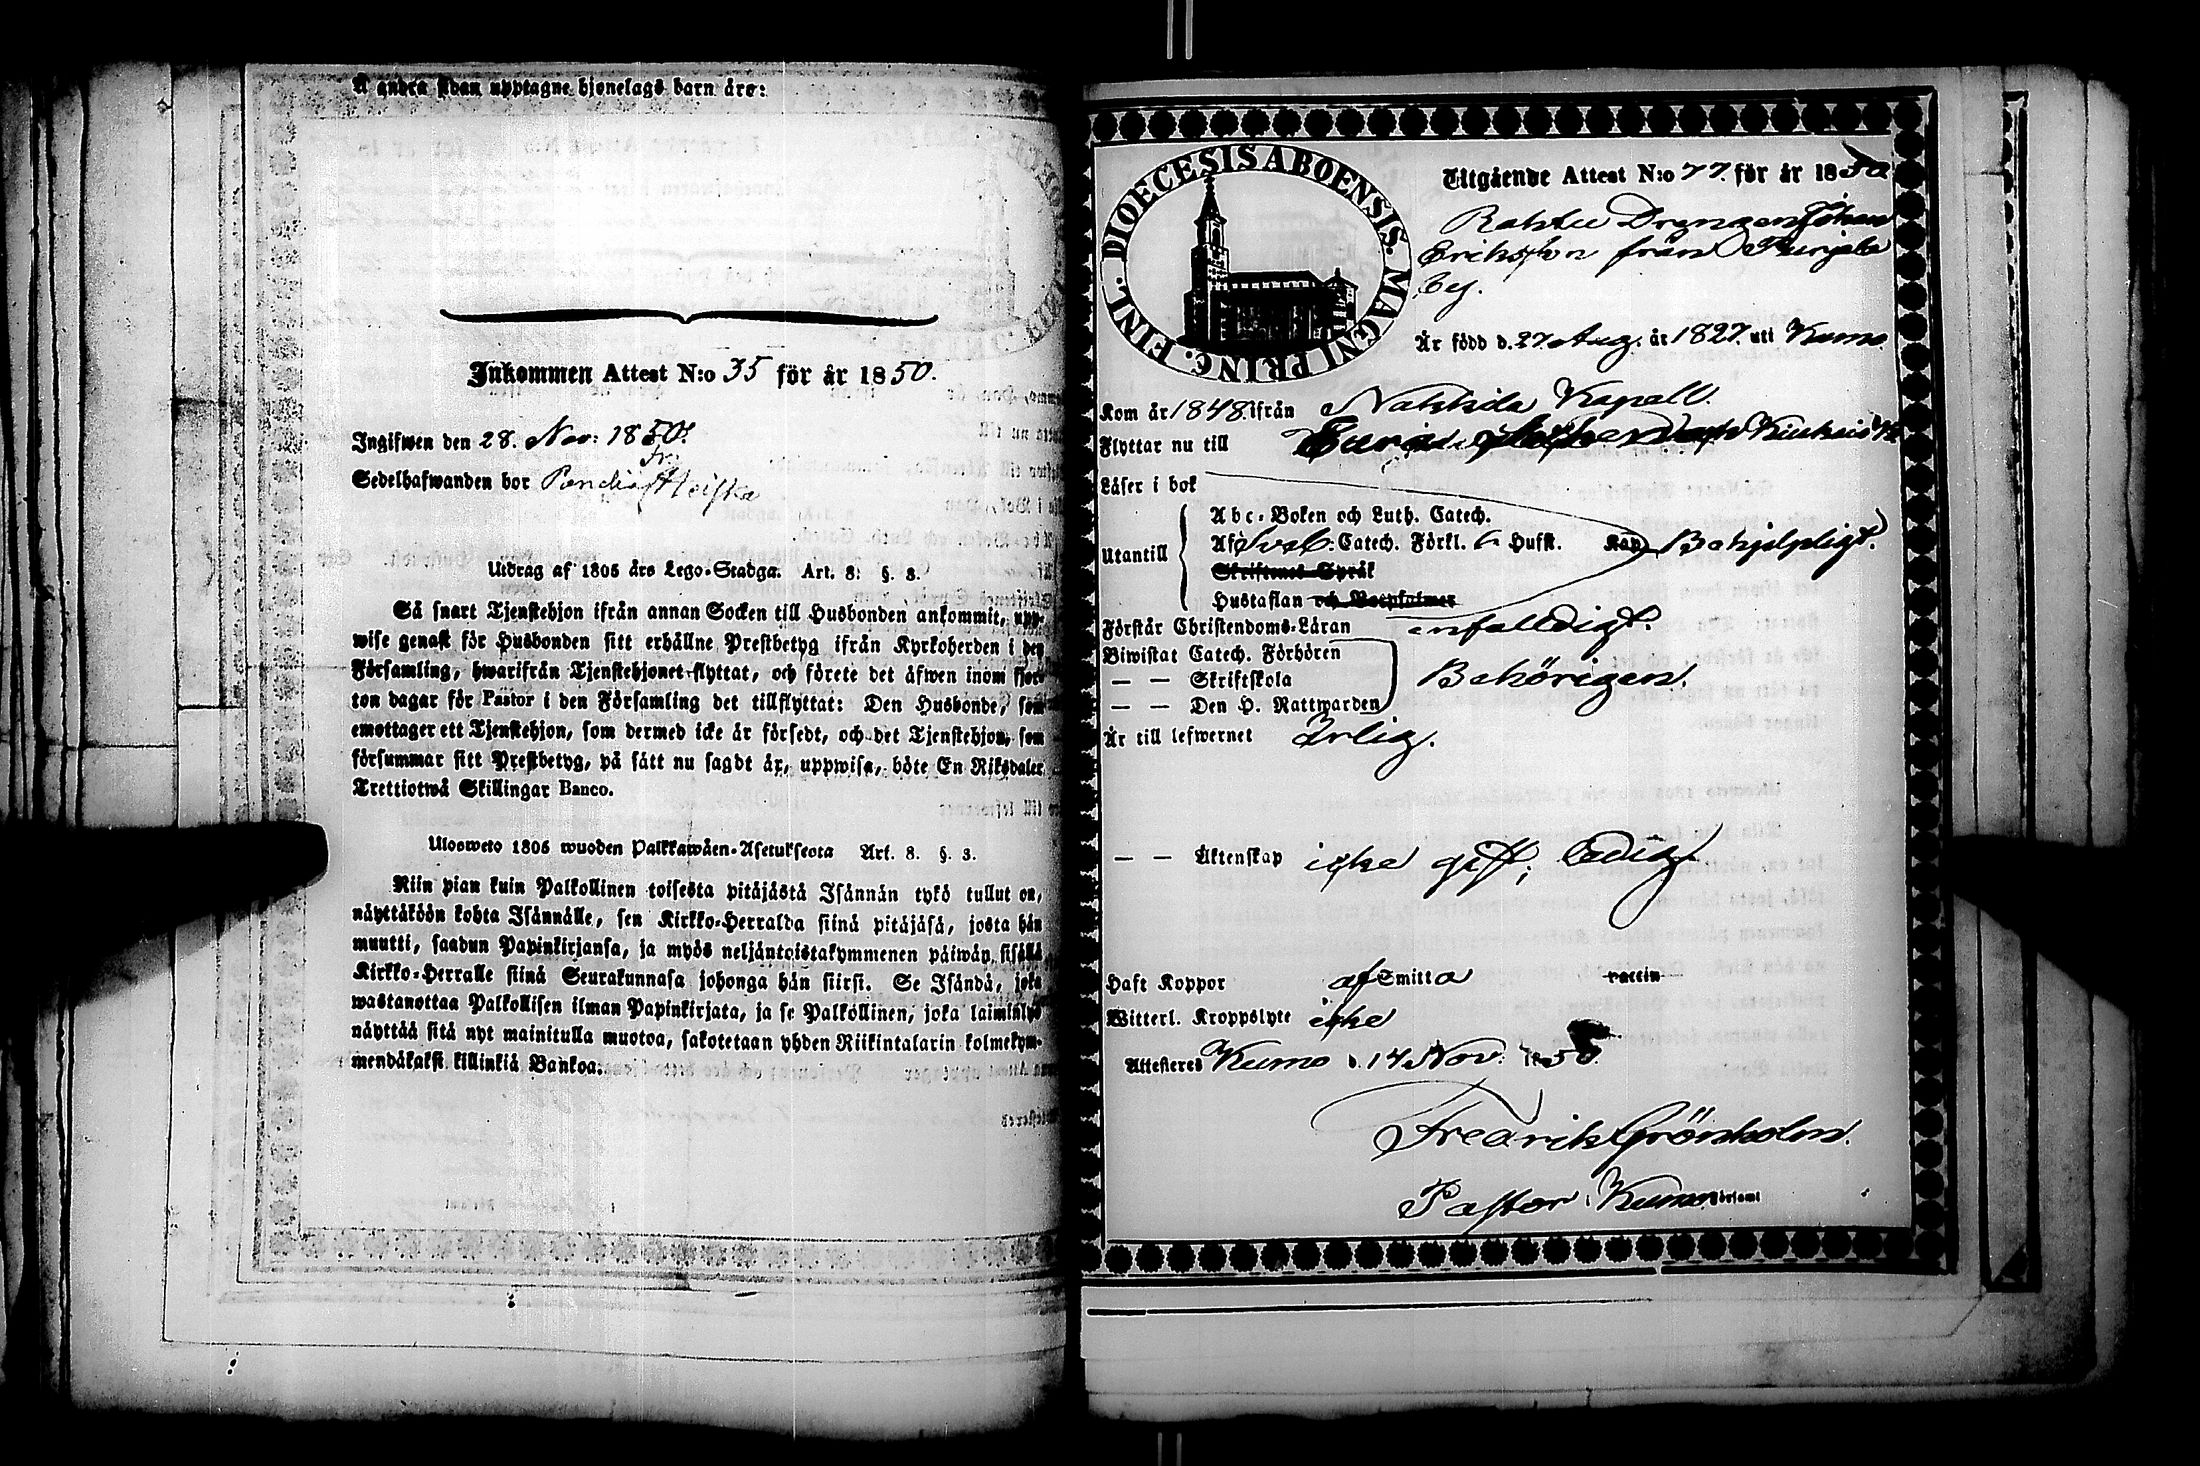 Å andra sidan upptagne hjonelags barn äro:
Inkommen Attest N:o 35 för år 1850.
Ingifwen den 28. Nov: 1850.
Sedelhafwanden bor
Utdrag af 1805 års Lego-Stadga. Art. 8: §. 3.
Så snart Tjenstehjon ifrån annan Socken till Husbonden ankommit, upp-
wise genast för Husbonden sitt erhållne Prestbetyg ifrån Kyrkoherden i den
Församling, hwarifrån Tjenstehjonet flyttat, och förete det äfwen inom fjor-
ton dagar för Pastor i den Församling det tillflyttat: Den Husbonde, som
emottager ett Tjenstehjon, som dermed icke är försedt, och det Tjenstehjon, som
försummar sitt Prestbetyg, på sätt nu sagdt är, uppwisa, böte En Riksdaler
Trettiotwå Skillingar Banco.
Ulosweto 1805 wuoden Palkkawäen-Asetuksesta Art. 8. §. 3.
Niin pian kuin Palkollinen toisesta pitäjästä Isännän tykö tullut on,
näyttäköön kohta Isännälle, sen Kirkko-Herralda siinä pitäjäsä, josta hän
muutti, saadun Papinkirjansa, ja myös neljäntoistakymmenen päiwän sisällä
Kirkko-Herralle siinä Seurakunnasa johonga hän siirsi. Se Isändä, joka
wastanottaa Palkollisen ilman Papinkirjata, ja se Palkollinen, joka laiminlyö
näyttää sitä nyt mainitulla muotoa, sakotetaan yhden Riikintalarin kolmekym-
mendäkaksi killinkiä Bankoa.
DIOECESIS ABOENSIS. MAGNI PRINC. FINL.
Utgående Attest N:o 77. för år 1850
Drengen Johan
Eriksson från Kurjala
by.
Är född d. 27 Aug. år 1827. uti Kumo
Kom år 1848. ifrån Nakkila Kapell.
Flyttar nu till
Läser i bok
Utantill
Abc-Boken och Luth. Catech.
Afs Sveb: Catech. Förkl. 6 Hufst. Kap. Behjelpligt.
Skriftenes Språk
Hustaflan och Botpsalmer
Förstår Christendoms-Läran enfalldigt.
Biwistat Catech. Förhören
— — Skriftskola Behörigen.
— — Den H. Nattwarden
Är till lefwernet Ärlig.
— — Äktenskap icke gift; Ledig.
Haft Koppor af Smitta vaccin
Witterl. Kroppslyte icke
Attesteres Kumo d. 14 Nov: 1850.
Fredrik Grönholm.
Pastor i Kumo Församl